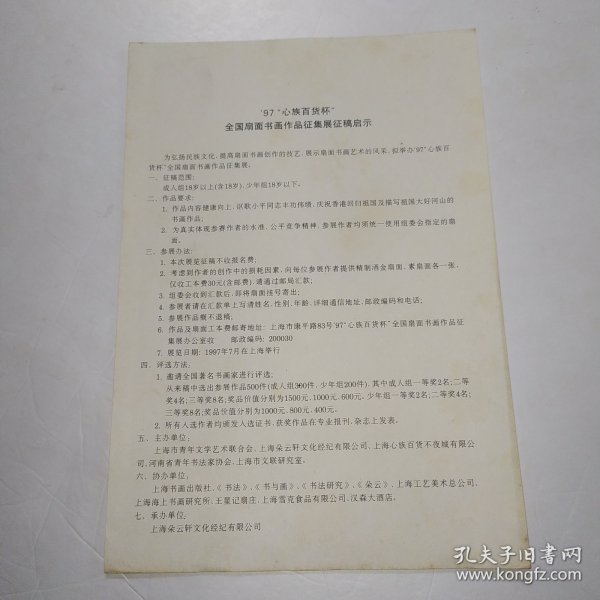 '97“心族百货杯”
全国扇面书画作品征集展征稿启示
为弘扬民族文化,提高扇面书画创作的技艺,展示扇面书画艺术的风采,拟举办'97“心族百
货杯”全国扇面书画作品征集展。
一、征稿范围:
成人组18岁以上(含18岁),少年组18岁以下。
二、作品要求:
1. 作品内容健康向上,讴歌小平同志丰功伟绩,庆祝香港回归祖国及描写祖国大好河山的
书画作品;
2. 为真实体现参赛作者的水准,公平竞争精神,参展作者均须统一使用组委会指定的扇
面。
三、参展办法:
1. 本次展览征稿不收报名费;
2. 考虑到作者的创作中的损耗因素,向每位参展作者提供精制洒金扇面、素扇面各一张,
仅收工本费30元(含邮费),请通过邮局汇款;
3. 组委会收到汇款后,即将扇面挂号寄出;
4. 参展者请在汇款单上写请姓名、性别、年龄、详细通信地址、邮政编码和电话;
5. 参展作品概不退稿;
6. 作品及扇面工本费邮寄地址: 上海市康平路83号'97“心族百货杯”全国扇面书画作品征
集展办公室收 邮政编码: 200030
7. 展览日期: 1997年7月在上海举行
四、评选方法:
1. 邀请全国著名书画家进行评选;
从来稿中选出参展作品500件(成人组300件,少年组200件),其中成人组一等奖2名;二等
奖4名;三等奖8名;奖品价值分别为1500元、1000元、600元,少年组一等奖2名;二等奖4名;
三等奖8名;奖品价值分别为1000元、800元、400元。
2. 所有入选作者均颁发入选证书,获奖作品在专业报刊、杂志上发表。
五、主办单位:
上海市青年文学艺术联合会、上海朵云轩文化经纪有限公司、上海心族百货不夜城有限公
司、河南省青年书法家协会、上海市文联研究室。
六、协办单位:
上海书画出版社、《书法》、《书与画》、《书法研究》、《朵云》、上海工艺美术总公司、
上海海上书画研究所、王星记扇庄、上海雪克食品有限公司、汉森大酒店。
七、承办单位:
上海朵云轩文化经纪有限公司
孔夫子旧书网
www.kongfz.com